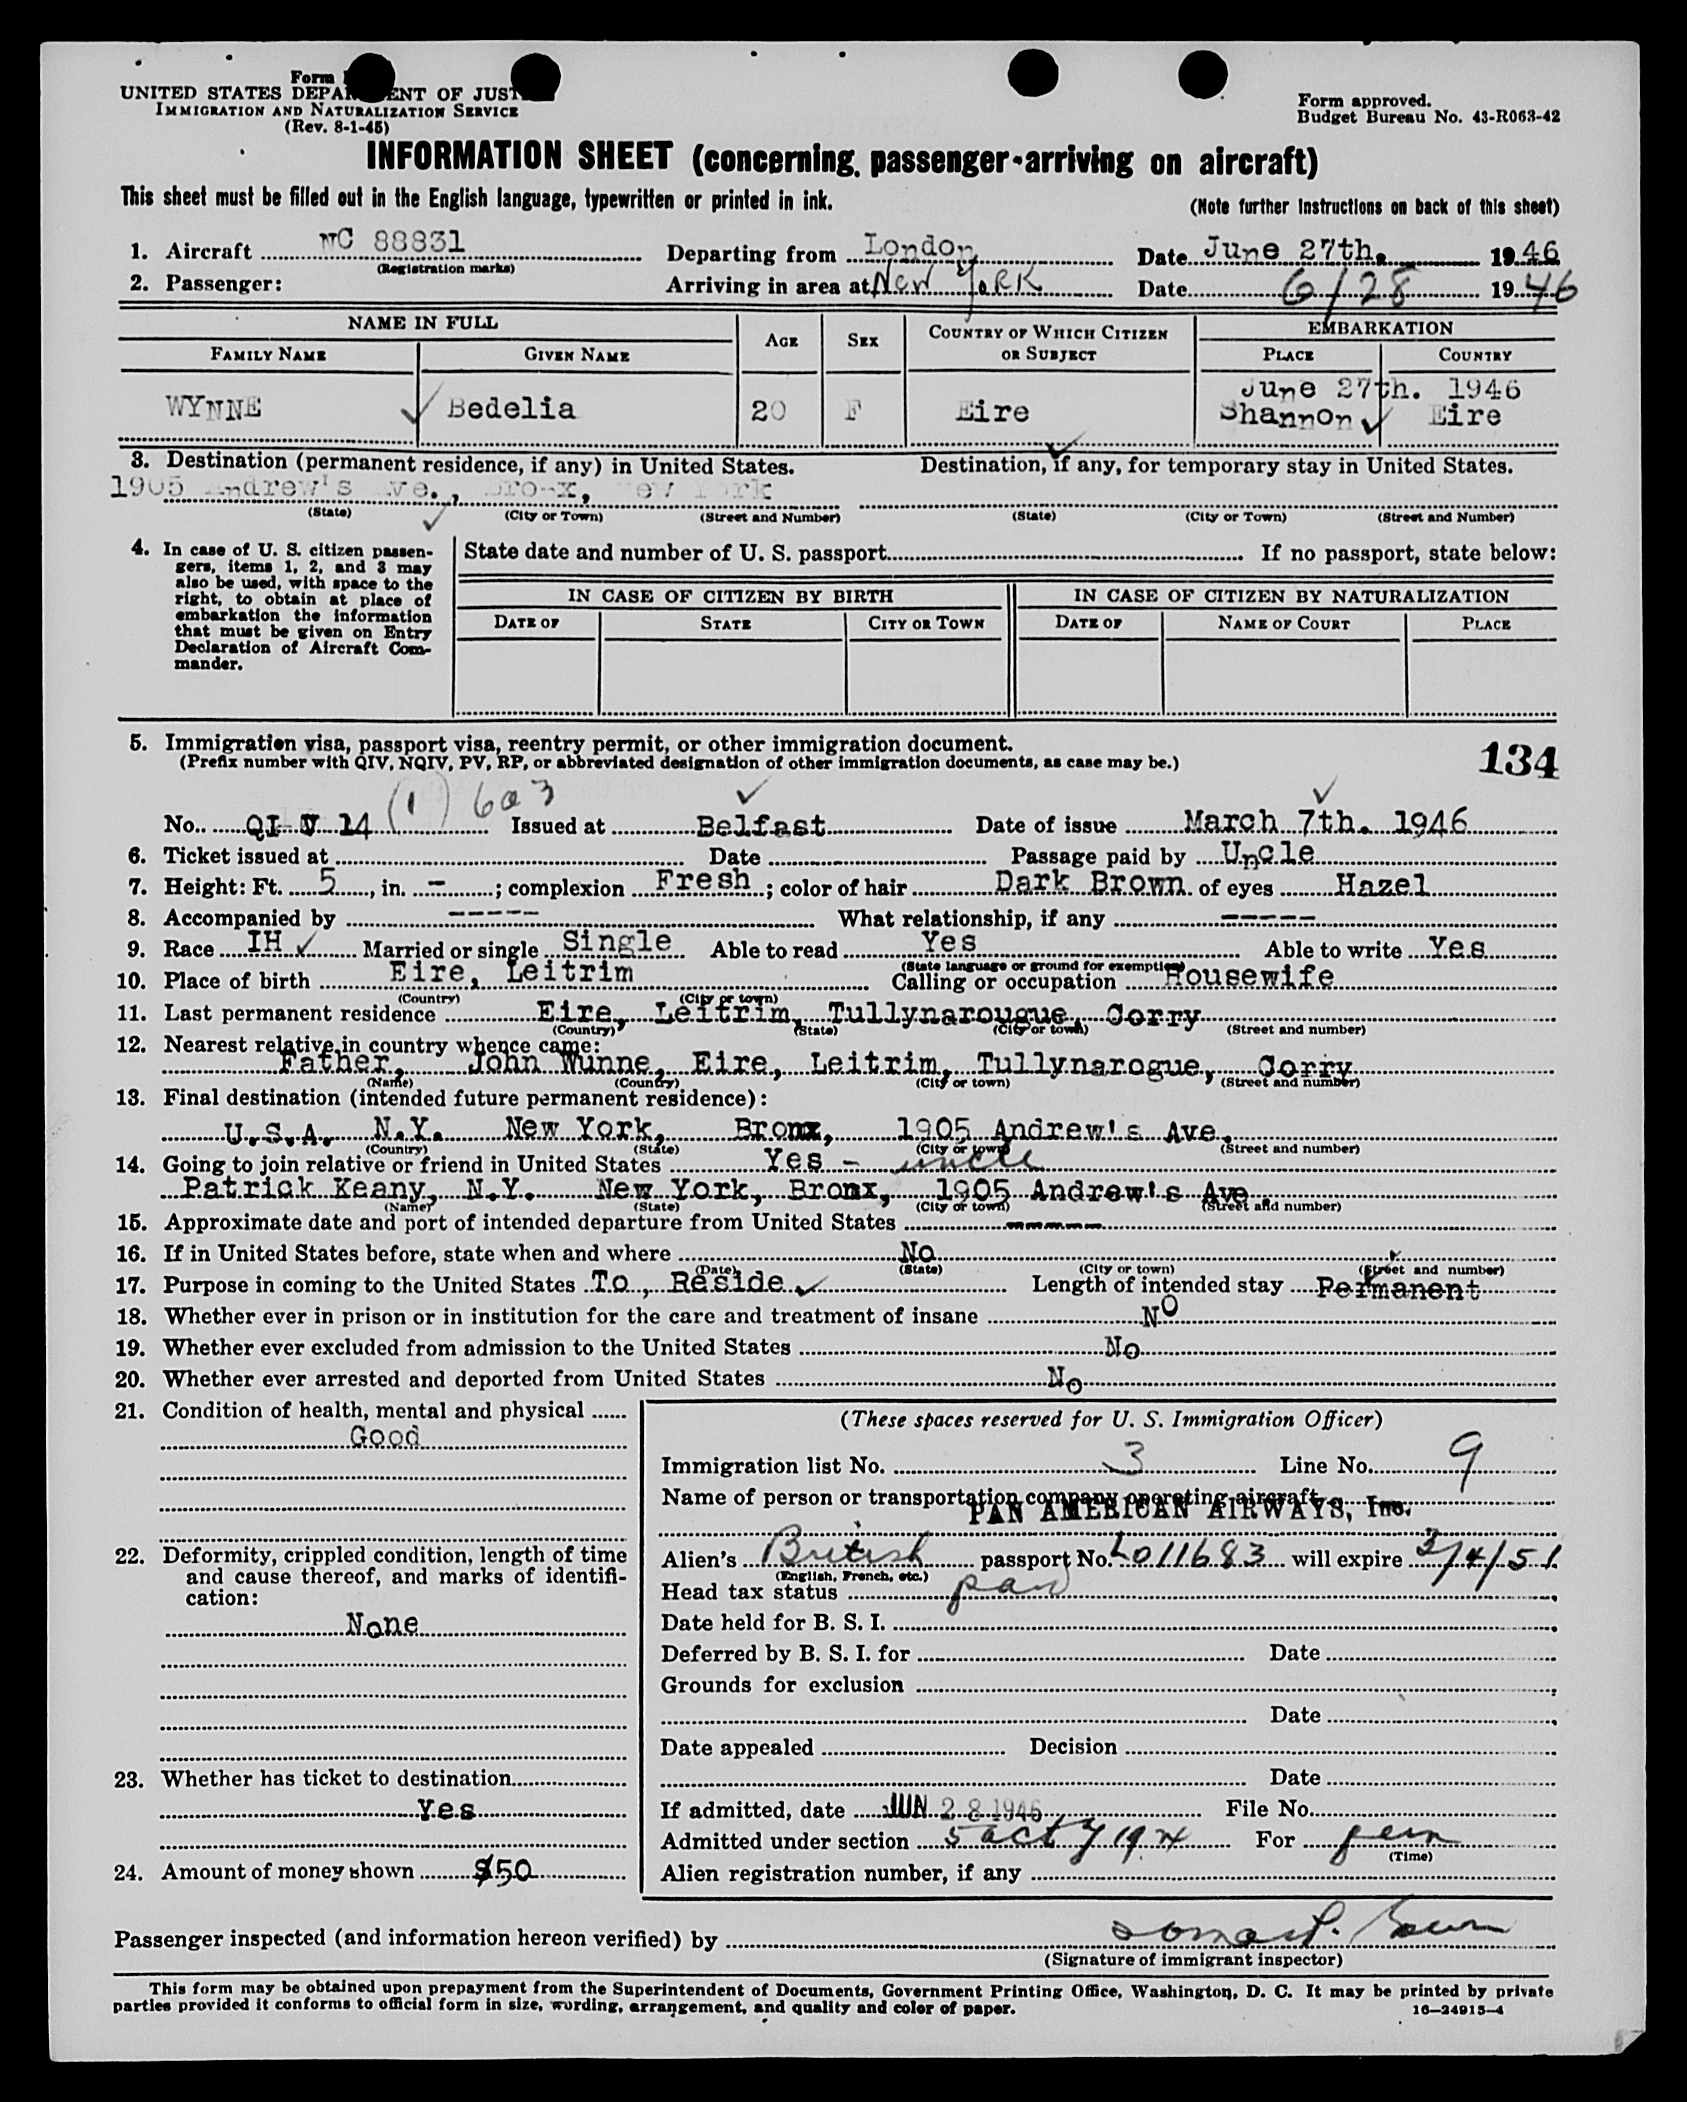 Form
UNITED STATES DEPARTMENT OF JUSTICE
IMMIGRATION AND NATURALIZATION SERVICE
(Rev. 8-1-45)
Form approved.
Budget Bureau No. 43-R063-42
INFORMATION SHEET (concerning passenger arriving on aircraft)
This sheet must be filled out in the English language, typewritten or printed in ink.
(Note further instructions on back of this sheet)
1. Aircraft NC 88831 Departing from London Date June 27th. 1946
(Registration marks)
2. Passenger: Arriving in area at New York Date 6/28 1946
NAME IN FULL AGE SEX COUNTRY OF WHICH CITIZEN OR SUBJECT EMBARKATION
FAMILY NAME GIVEN NAME PLACE COUNTRY
June 27th. 1946
WYNNE Bedelia 20 F Eire Shannon Eire
3. Destination (permanent residence, if any) in United States. Destination, if any, for temporary stay in United States.
1905 Andrew's Ave., Bronx, New York
(State) (City or Town) (Street and Number) (State) (City or Town) (Street and Number)
4. In case of U. S. citizen passen-
gers, items 1, 2, and 3 may
also be used, with space to the
right, to obtain at place of
embarkation the information
that must be given on Entry
Declaration of Aircraft Com-
mander.
State date and number of U. S. passport If no passport, state below:
IN CASE OF CITIZEN BY BIRTH IN CASE OF CITIZEN BY NATURALIZATION
DATE OF STATE CITY OR TOWN DATE OF NAME OF COURT PLACE
5. Immigration visa, passport visa, reentry permit, or other immigration document.
(Prefix number with QIV, NQIV, PV, RP, or abbreviated designation of other immigration documents, as case may be.)
134
(1) 603
No. QI V 14 Issued at Belfast Date of issue March 7th. 1946
6. Ticket issued at Date Passage paid by Uncle
7. Height: Ft. 5, in. -; complexion Fresh; color of hair Dark Brown of eyes Hazel
8. Accompanied by ----- What relationship, if any -----
9. Race IH Married or single Single Able to read Yes Able to write Yes
(State language or ground for exemption)
10. Place of birth Eire, Leitrim Calling or occupation Housewife
(Country) (City or town)
11. Last permanent residence Eire, Leitrim, Tullynarougue, Corry
(Country) (State) (City or town) (Street and number)
12. Nearest relative in country whence came:
Father, John Wunne, Eire, Leitrim, Tullynarogue, Corry
(Name) (Country) (City or town) (Street and number)
13. Final destination (intended future permanent residence):
U.S.A. N.Y. New York, Bronx, 1905 Andrew's Ave.
(Country) (State) (City or town) (Street and number)
14. Going to join relative or friend in United States Yes - uncle
Patrick Keany, N.Y. New York, Bronx, 1905 Andrew's Ave.
(Name) (State) (City or town) (Street and number)
15. Approximate date and port of intended departure from United States -----
16. If in United States before, state when and where No
(Date) (State) (City or town) (Street and number)
17. Purpose in coming to the United States To, Reside Length of intended stay Permanent
18. Whether ever in prison or in institution for the care and treatment of insane NO
19. Whether ever excluded from admission to the United States No
20. Whether ever arrested and deported from United States No
21. Condition of health, mental and physical
Good
22. Deformity, crippled condition, length of time
and cause thereof, and marks of identifi-
cation:
None
23. Whether has ticket to destination
Yes
24. Amount of money shown $50
(These spaces reserved for U. S. Immigration Officer)
Immigration list No. 3 Line No. 9
Name of person or transportation company operating aircraft
PAN AMERICAN AIRWAYS, Inc.
Alien's British passport No. L011683 will expire 3/4/51
(English, French, etc.)
Head tax status paid
Date held for B. S. I.
Deferred by B. S. I. for Date
Grounds for exclusion
Date
Date appealed Decision
Date
If admitted, date JUN 28 1946 File No.
Admitted under section 5 act of 1924 For perm
(Time)
Alien registration number, if any
Passenger inspected (and information hereon verified) by
(Signature of immigrant inspector)
This form may be obtained upon prepayment from the Superintendent of Documents, Government Printing Office, Washington, D. C. It may be printed by private
parties provided it conforms to official form in size, wording, arrangement, and quality and color of paper.
16—24915-4